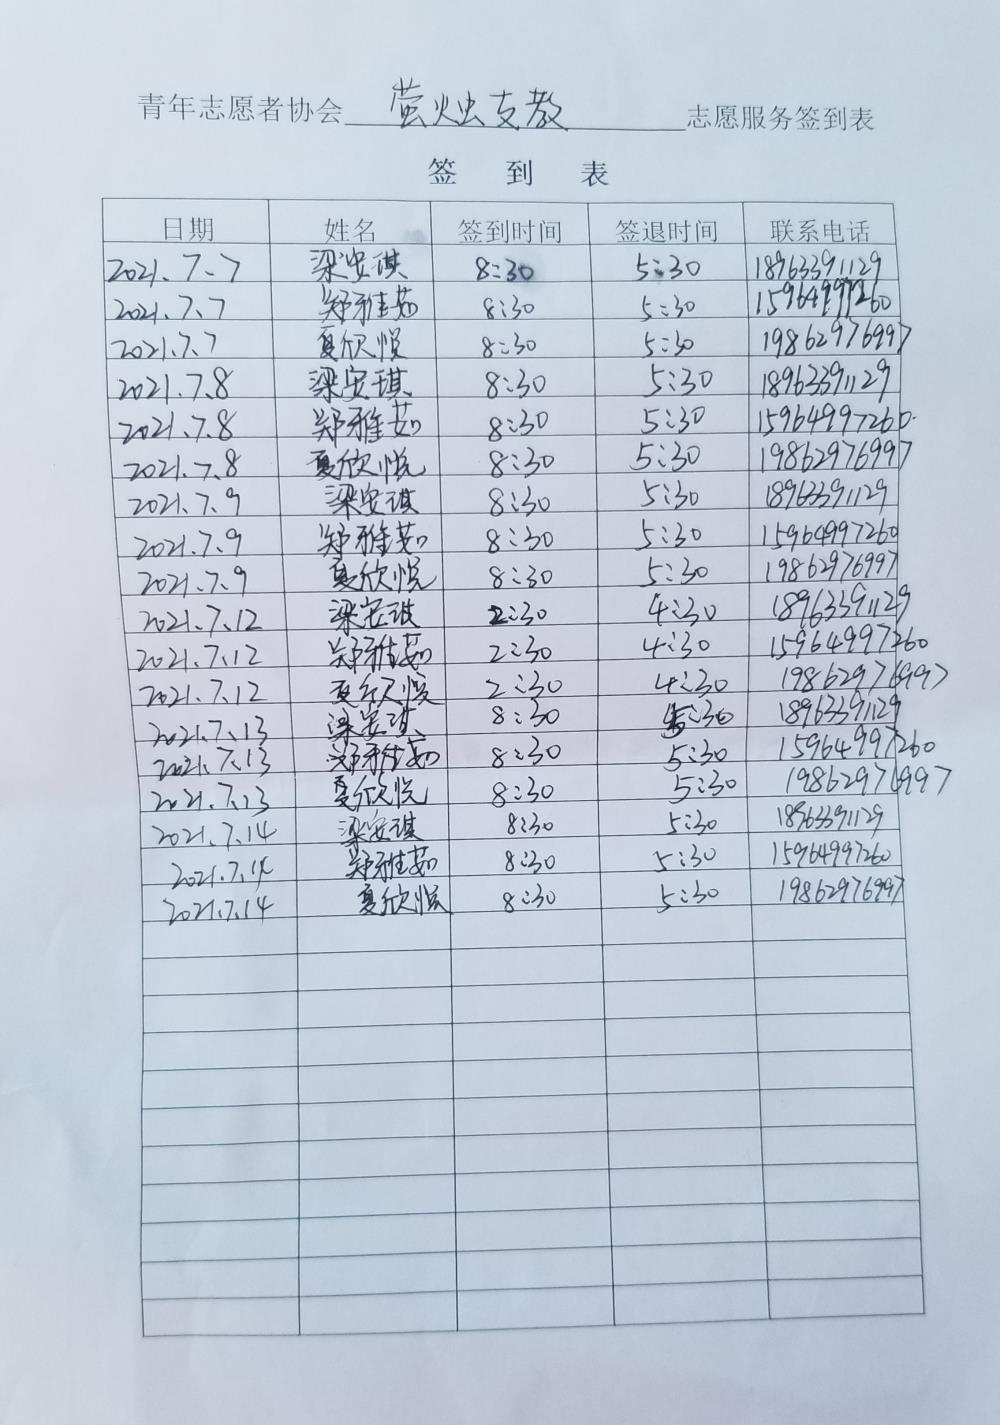 青年志愿者协会 萤火虫支教 志愿服务签到表
签 到 表
日期 姓名 签到时间 签退时间 联系电话
2021.7.7 梁安琪 8:30 5:30 18963391129
2021.7.7 郑雅茹 8:30 5:30 15964997260
2021.7.7 夏欣悦 8:30 5:30 19862976997
2021.7.8 梁安琪 8:30 5:30 18963391129
2021.7.8 郑雅茹 8:30 5:30 15964997260
2021.7.8 夏欣悦 8:30 5:30 19862976997
2021.7.9 梁安琪 8:30 5:30 18963391129
2021.7.9 郑雅茹 8:30 5:30 15964997260
2021.7.9 夏欣悦 8:30 5:30 19862976997
2021.7.12 梁安琪 2:30 4:30 18963391129
2021.7.12 郑雅茹 2:30 4:30 15964997260
2021.7.12 夏欣悦 2:30 4:30 19862976997
2021.7.13 梁安琪 8:30 5:30 18963391129
2021.7.13 郑雅茹 8:30 5:30 15964997260
2021.7.13 夏欣悦 8:30 5:30 19862976997
2021.7.14 梁安琪 8:30 5:30 18963391129
2021.7.14 郑雅茹 8:30 5:30 15964997260
2021.7.14 夏欣悦 8:30 5:30 19862976997